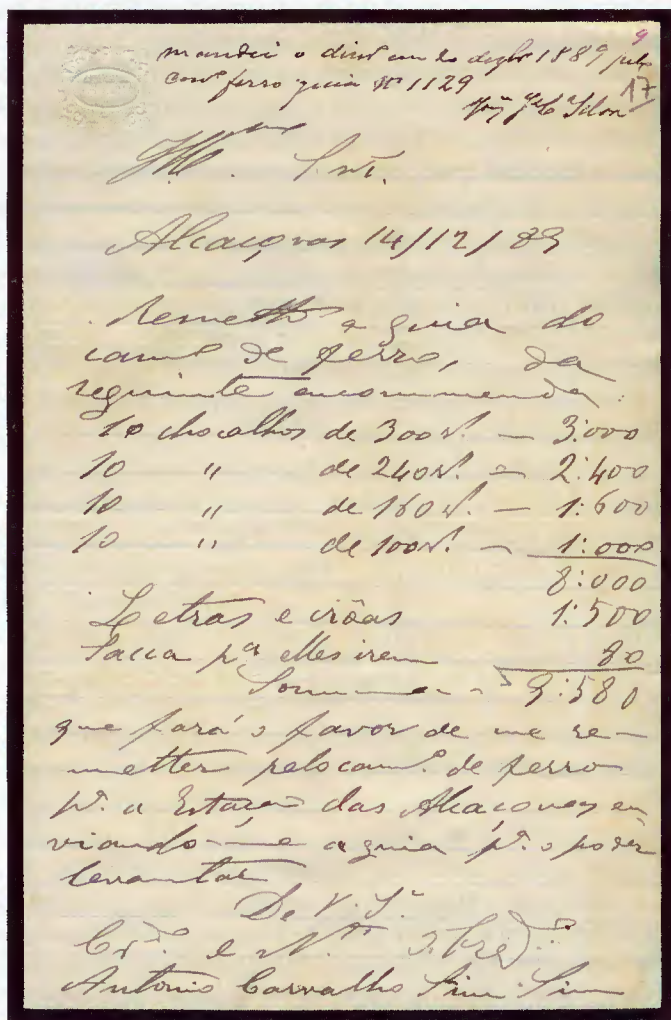 9
mandei o dinº em 20 dezbr 1889 pelo
camº ferro guia Nº 1129
17
Illmº Snr.
Alcaçovas 14/12/89
Remetto a guia do
camº de ferro, da
seguinte encommenda:
10 chocalhos de 300 rs. — 3:000
10 " de 240 rs. — 2:400
10 " de 160 rs. — 1:600
10 " de 100 rs. — 1:000
8:000
Letras e crôas 1:500
Sacca pª elles irem 80
Somma — 9:580
que fará o favor de me re-
metter pelo camº de ferro
pª a Estação das Alcaçovas en
viando-me a guia pª o poder
levantar
De V. Sª
Crº e Nº Obrgº
Antonio Carvalho Sim Sim